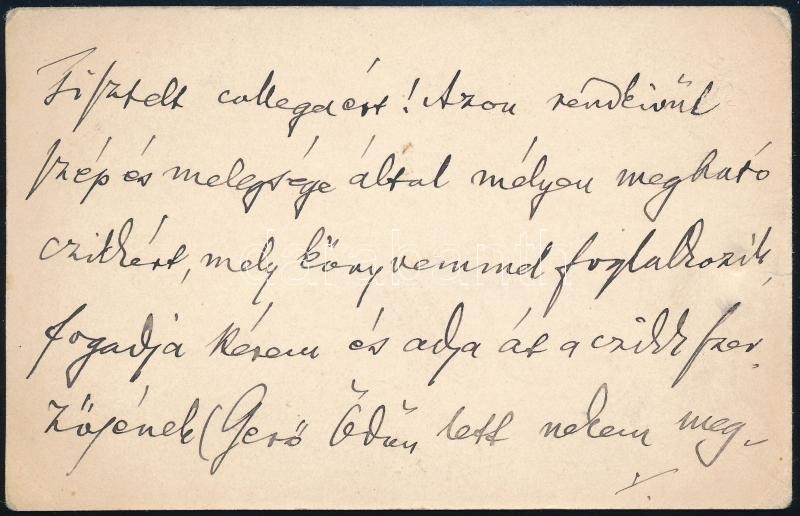 Tisztelt collega úr! Azon rendkivül
szép és melegsége által mélyen megható
czikkért, mely könyvemmel foglalkozik,
fogadja kérem és adja át a czikk szer-
zőjének (Gerő Ödön lett nekem meg-
darabanth